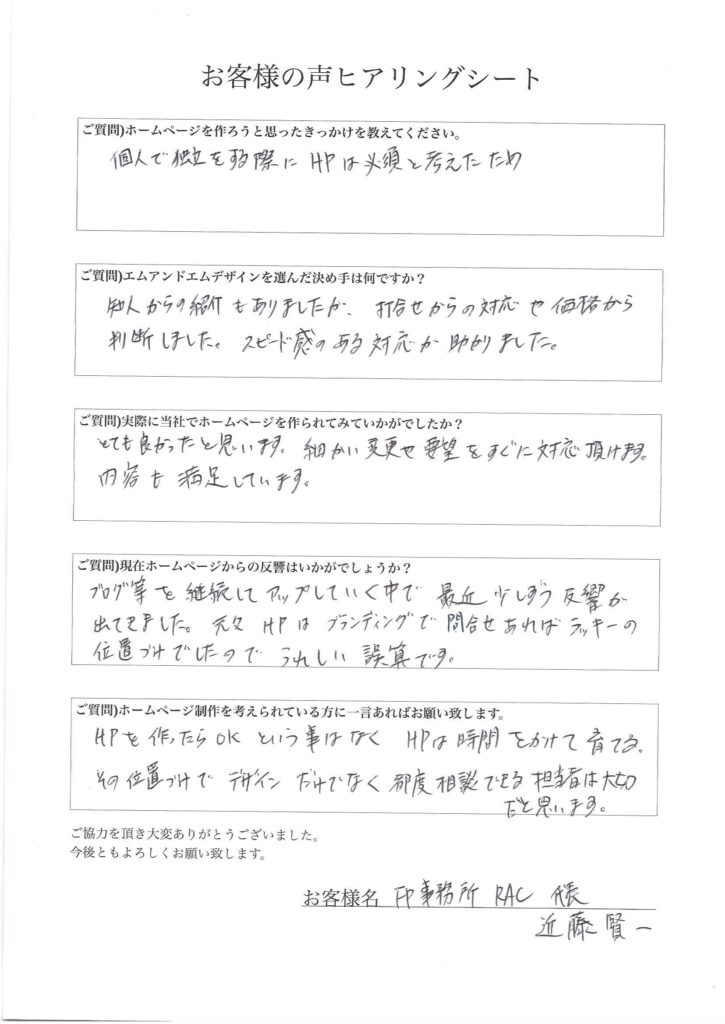 お客様の声ヒアリングシート
ご質問)ホームページを作ろうと思ったきっかけを教えてください。
個人で独立をする際に HPは必須と考えたため
ご質問)エムアンドエムデザインを選んだ決め手は何ですか？
知人からの紹介もありましたが、打合せからの対応や価格から
判断しました。スピード感のある対応が助かりました。
ご質問)実際に当社でホームページを作られてみていかがでしたか？
とても良かったと思います。細かい変更や要望をすぐに対応頂けます。
内容も満足しています。
ご質問)現在ホームページからの反響はいかがでしょうか？
ブログ等を継続してアップしていく中で最近少しずつ反響が
出てきました。元々HPはブランディングで問合せあればラッキーの
位置づけでしたのでうれしい誤算です。
ご質問)ホームページ制作を考えられている方に一言あればお願い致します。
HPを作ったらOKという事はなく HPは時間をかけて育てる。
その位置づけでデザインだけでなく都度相談できる担当者は大切
だと思います。
ご協力を頂き大変ありがとうございました。
今後ともよろしくお願い致します。
お客様名 FP事務所 RAC 代表
近藤賢一